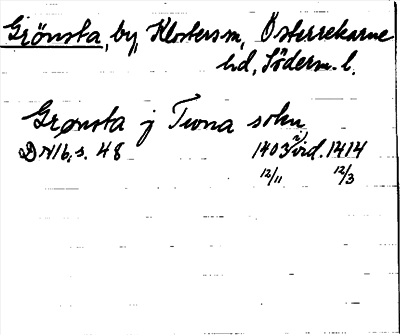 Grönsta, by, Klostersn, Österrekarne
hd, Söderm. l.
Grønsta j Twna sokn
DN 16, s. 48 1403 2) vid. 1414
12/11 12/3